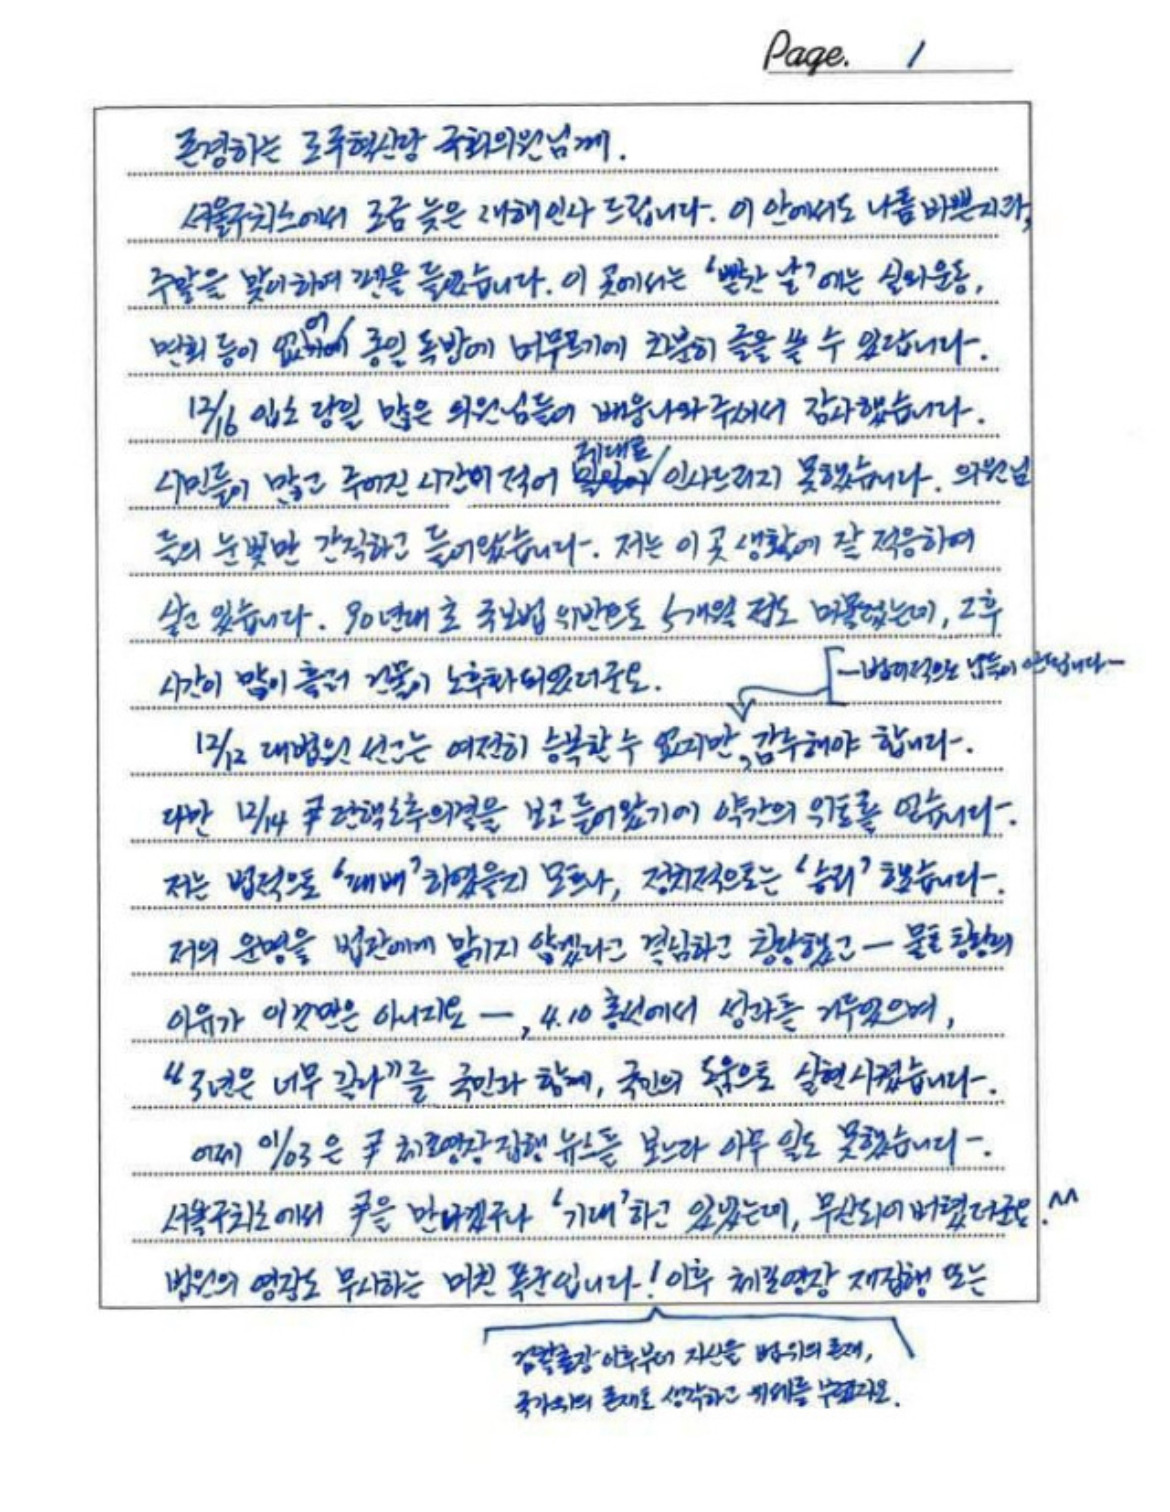 Page. 1
존경하는 조국혁신당 국회의원님께.
서울구치소에서 조금 늦은 새해인사 드립니다. 이 안에서도 나름 바쁜지라,
주말을 맞이하여 펜을 들었습니다. 이 곳에서는 '빨간 날'에는 실외운동,
어
면회 등이 종일 독방에 머무르기에 차분히 글을 쓸 수 있답니다.
12/16 입소 당일 많은 의원님들이 배웅나와주셔서 감사했습니다.
제대로
시민들이 많고 주어진 시간이 적어 인사드리지 못했습니다. 의원님
들의 눈빛만 간직하고 들어왔습니다. 저는 이 곳 생활에 잘 적응하여
살고 있습니다. 90년대 초 국보법 위반으로 5개월 정도 머물렀는데, 그후
시간이 많이 흘러 건물이 노후화되었더군요.
- 법리적으로 납득이 안됩니다 -
12/12 대법원 선고는 여전히 승복할 수 없지만, 감수해야 합니다.
다만 12/14 尹 탄핵소추의결을 보고 들어왔기에 약간의 위로를 얻습니다.
저는 법적으로 '패배'하였을지 모르나, 정치적으로는 '승리'했습니다.
저의 운명을 법관에게 맡기지 않겠다고 결심하고 창당했고 — 물론 창당의
이유가 이것만은 아니지요 —, 4.10 총선에서 성과를 거두었으며,
"3년은 너무 길다"를 국민과 함께, 국민의 도움으로 실현시켰습니다.
어제 01/03은 尹 체포영장 집행 뉴스를 보느라 아무 일도 못했습니다.
서울구치소에서 尹을 만나겠구나 '기대'하고 있었는데, 무산되어 버렸더군요. ^^
법원의 영장도 무시하는 미친 폭군입니다! 이후 체포영장 재집행 또는
검찰총장 이후부터 자신을 법 위의 존재,
국가 위의 존재로 생각하고 행세를